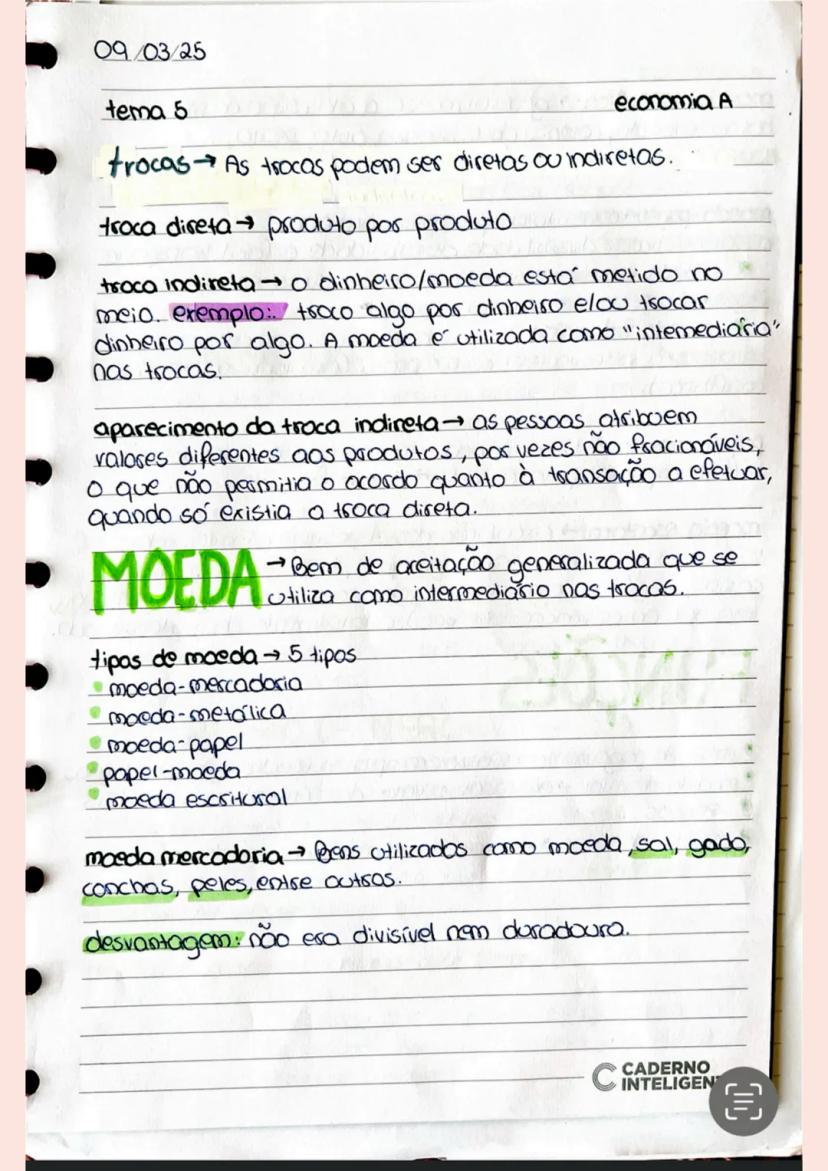 09/03/25
tema 5 economia A
trocas → As trocas podem ser diretas ou indiretas.
troca direta → produto por produto
troca indireta → o dinheiro/moeda está metido no
meio. exemplo: troco algo por dinheiro e/ou trocar
dinheiro por algo. A moeda é utilizada como "intemediária"
nas trocas.
aparecimento da troca indireta → as pessoas atribuem
valores diferentes aos produtos, por vezes não fracionáveis,
o que não permitia o acordo quanto à transação a efetuar,
quando só existia a troca direta.
MOEDA → Bem de aceitação generalizada que se
utiliza como intermediário nas trocas.
tipos de moeda → 5 tipos
• moeda-mercadoria
• moeda-metálica
• moeda-papel
• papel-moeda
• moeda escritural
moeda mercadoria → Bens utilizados como moeda, sal, gado,
conchas, peles, entre outros.
desvantagem: não era divisível nem duradoura.
CADERNO
INTELIGEN